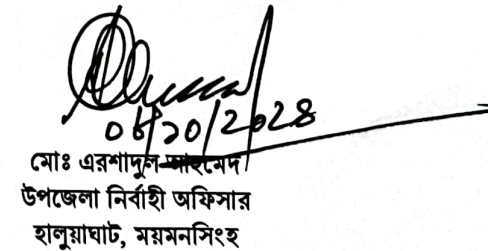 ০৮/১০/২০২৪
মোঃ এরশাদুল আহমেদ
উপজেলা নির্বাহী অফিসার
হালুয়াঘাট, ময়মনসিংহ